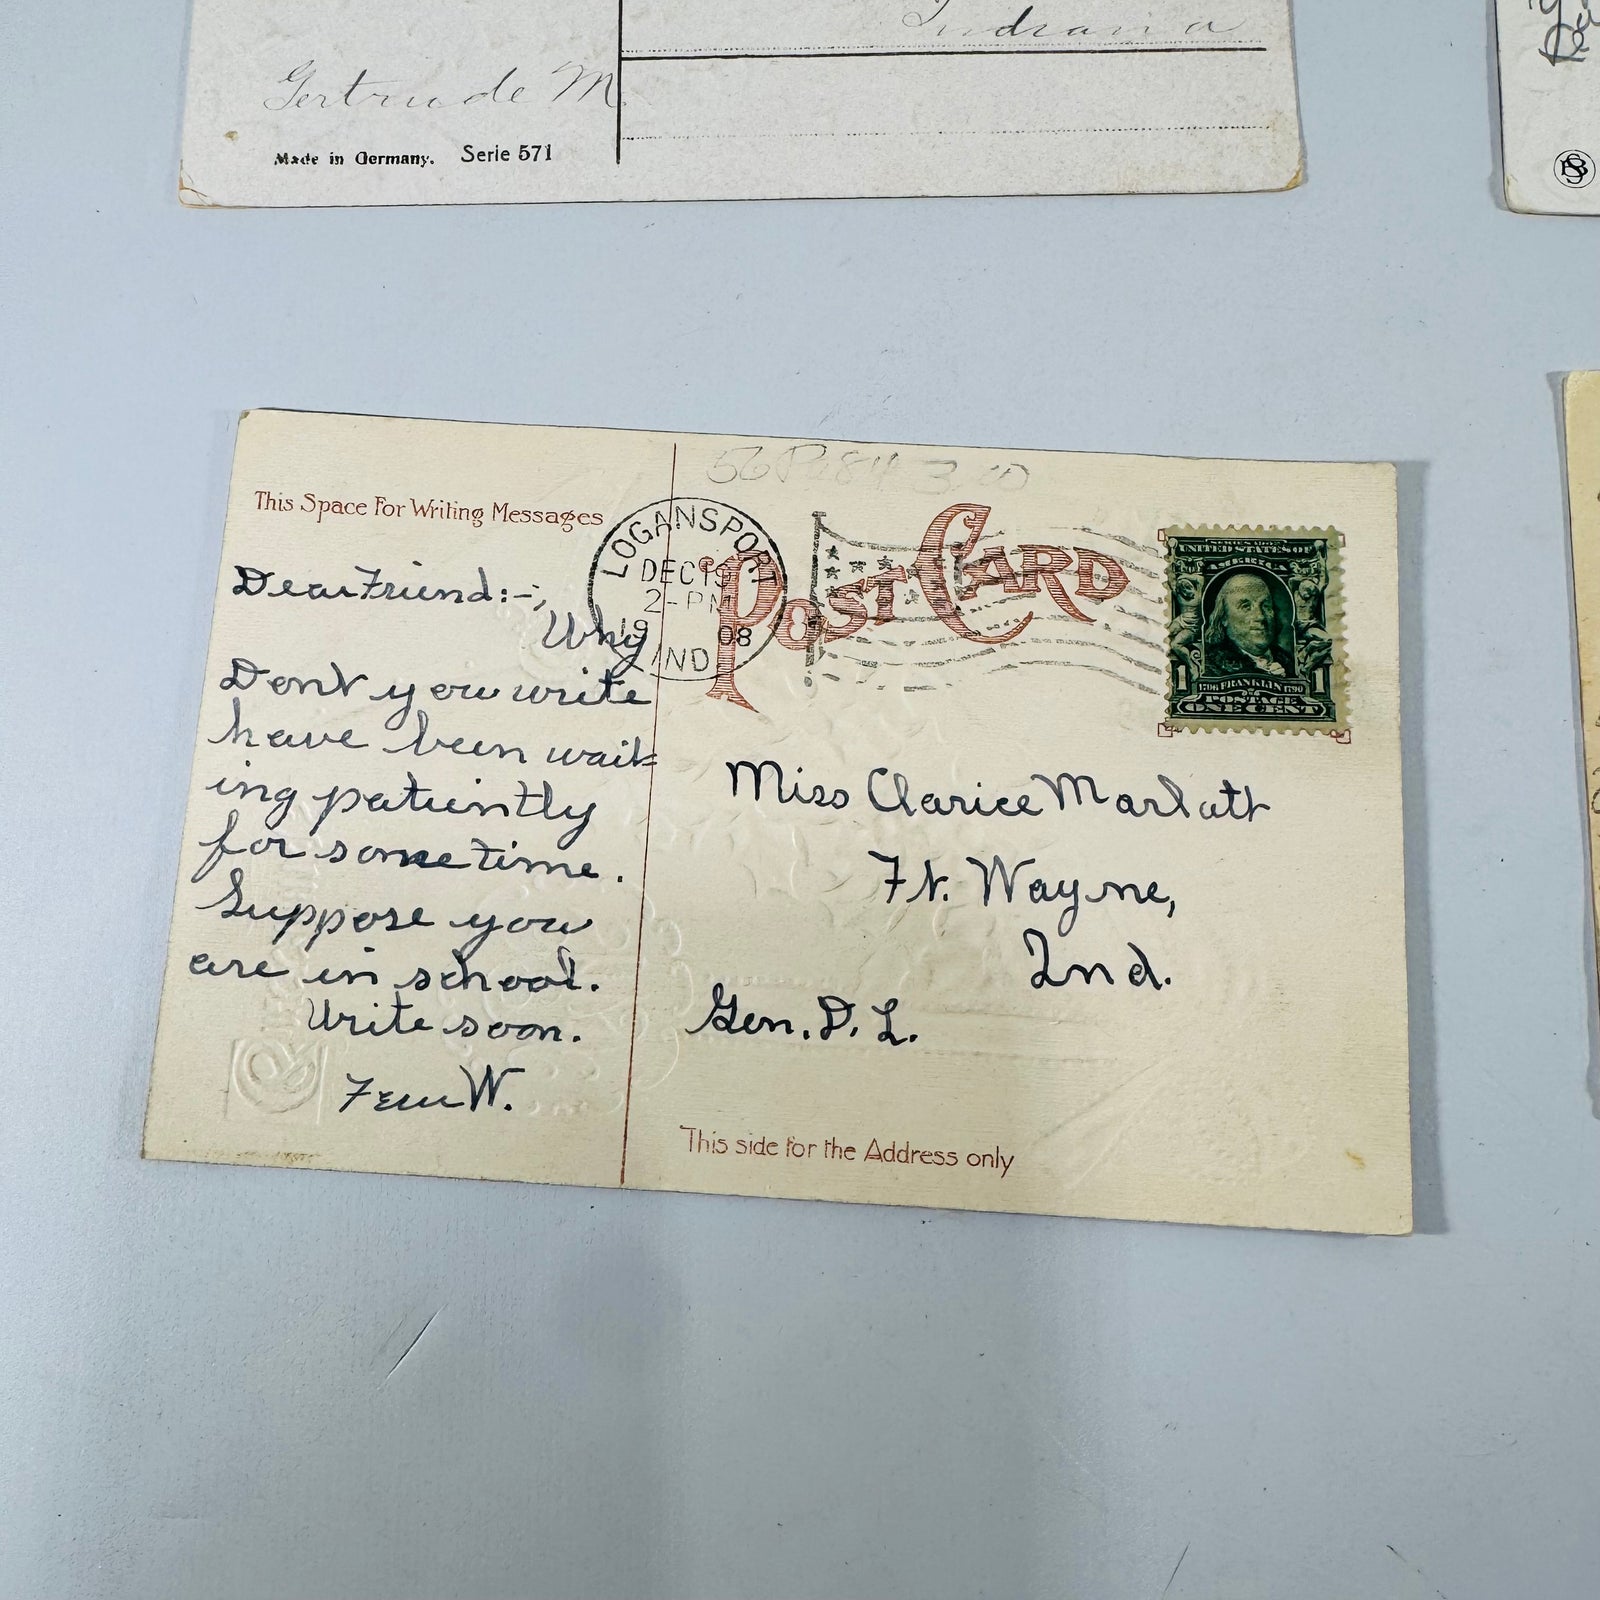 Indiana
Gertrude M.
Made in Germany. Serie 571
This Space For Writing Messages
Dear Friend:-,
Why
Dont you write
have been wait=
ing patiently
for sometime.
Suppose you
are in school.
Write soon.
Fern W.
LOGANSPORT
DEC 19
2-PM
19 08
IND.
POST CARD
SERIES 1902
UNITED STATES OF
AMERICA
1 1706 FRANKLIN 1790 1
POSTAGE
ONE CENT
Miss Clarice Marlatt
Ft. Wayne,
Ind.
Gen. D. L.
This side for the Address only